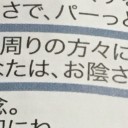 さで、パーっと
周りの方々に
たは、お陰さ
念。